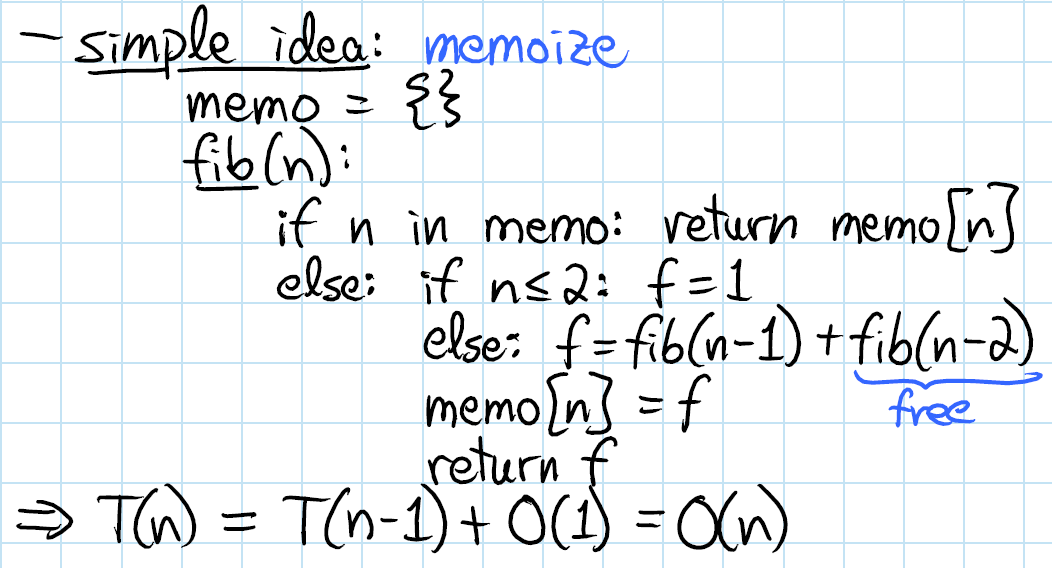 - simple idea: memoize
memo = {}
fib(n):
if n in memo: return memo[n]
else: if n≤2: f=1
else: f=fib(n-1)+fib(n-2)
free
memo[n] = f
return f
⇒ T(n) = T(n-1)+O(1) = O(n)